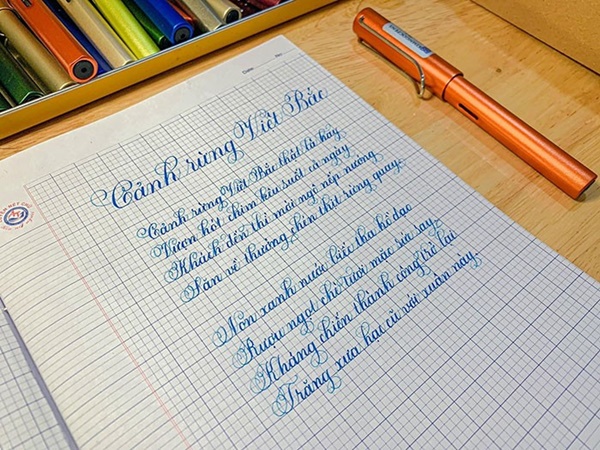 Date: No:
Cảnh rừng Việt Bắc
Cảnh rừng Việt Bắc thật là hay
Vượn hót chim kêu suốt cả ngày
Khách đến thì mời ngô nếp nướng
Săn về thường chén thịt rừng quay
Non xanh nước biếc tha hồ dạo
Rượu ngọt chè tươi mặc sức say
Kháng chiến thành công trở lại
Trăng xưa hạc cũ với xuân này